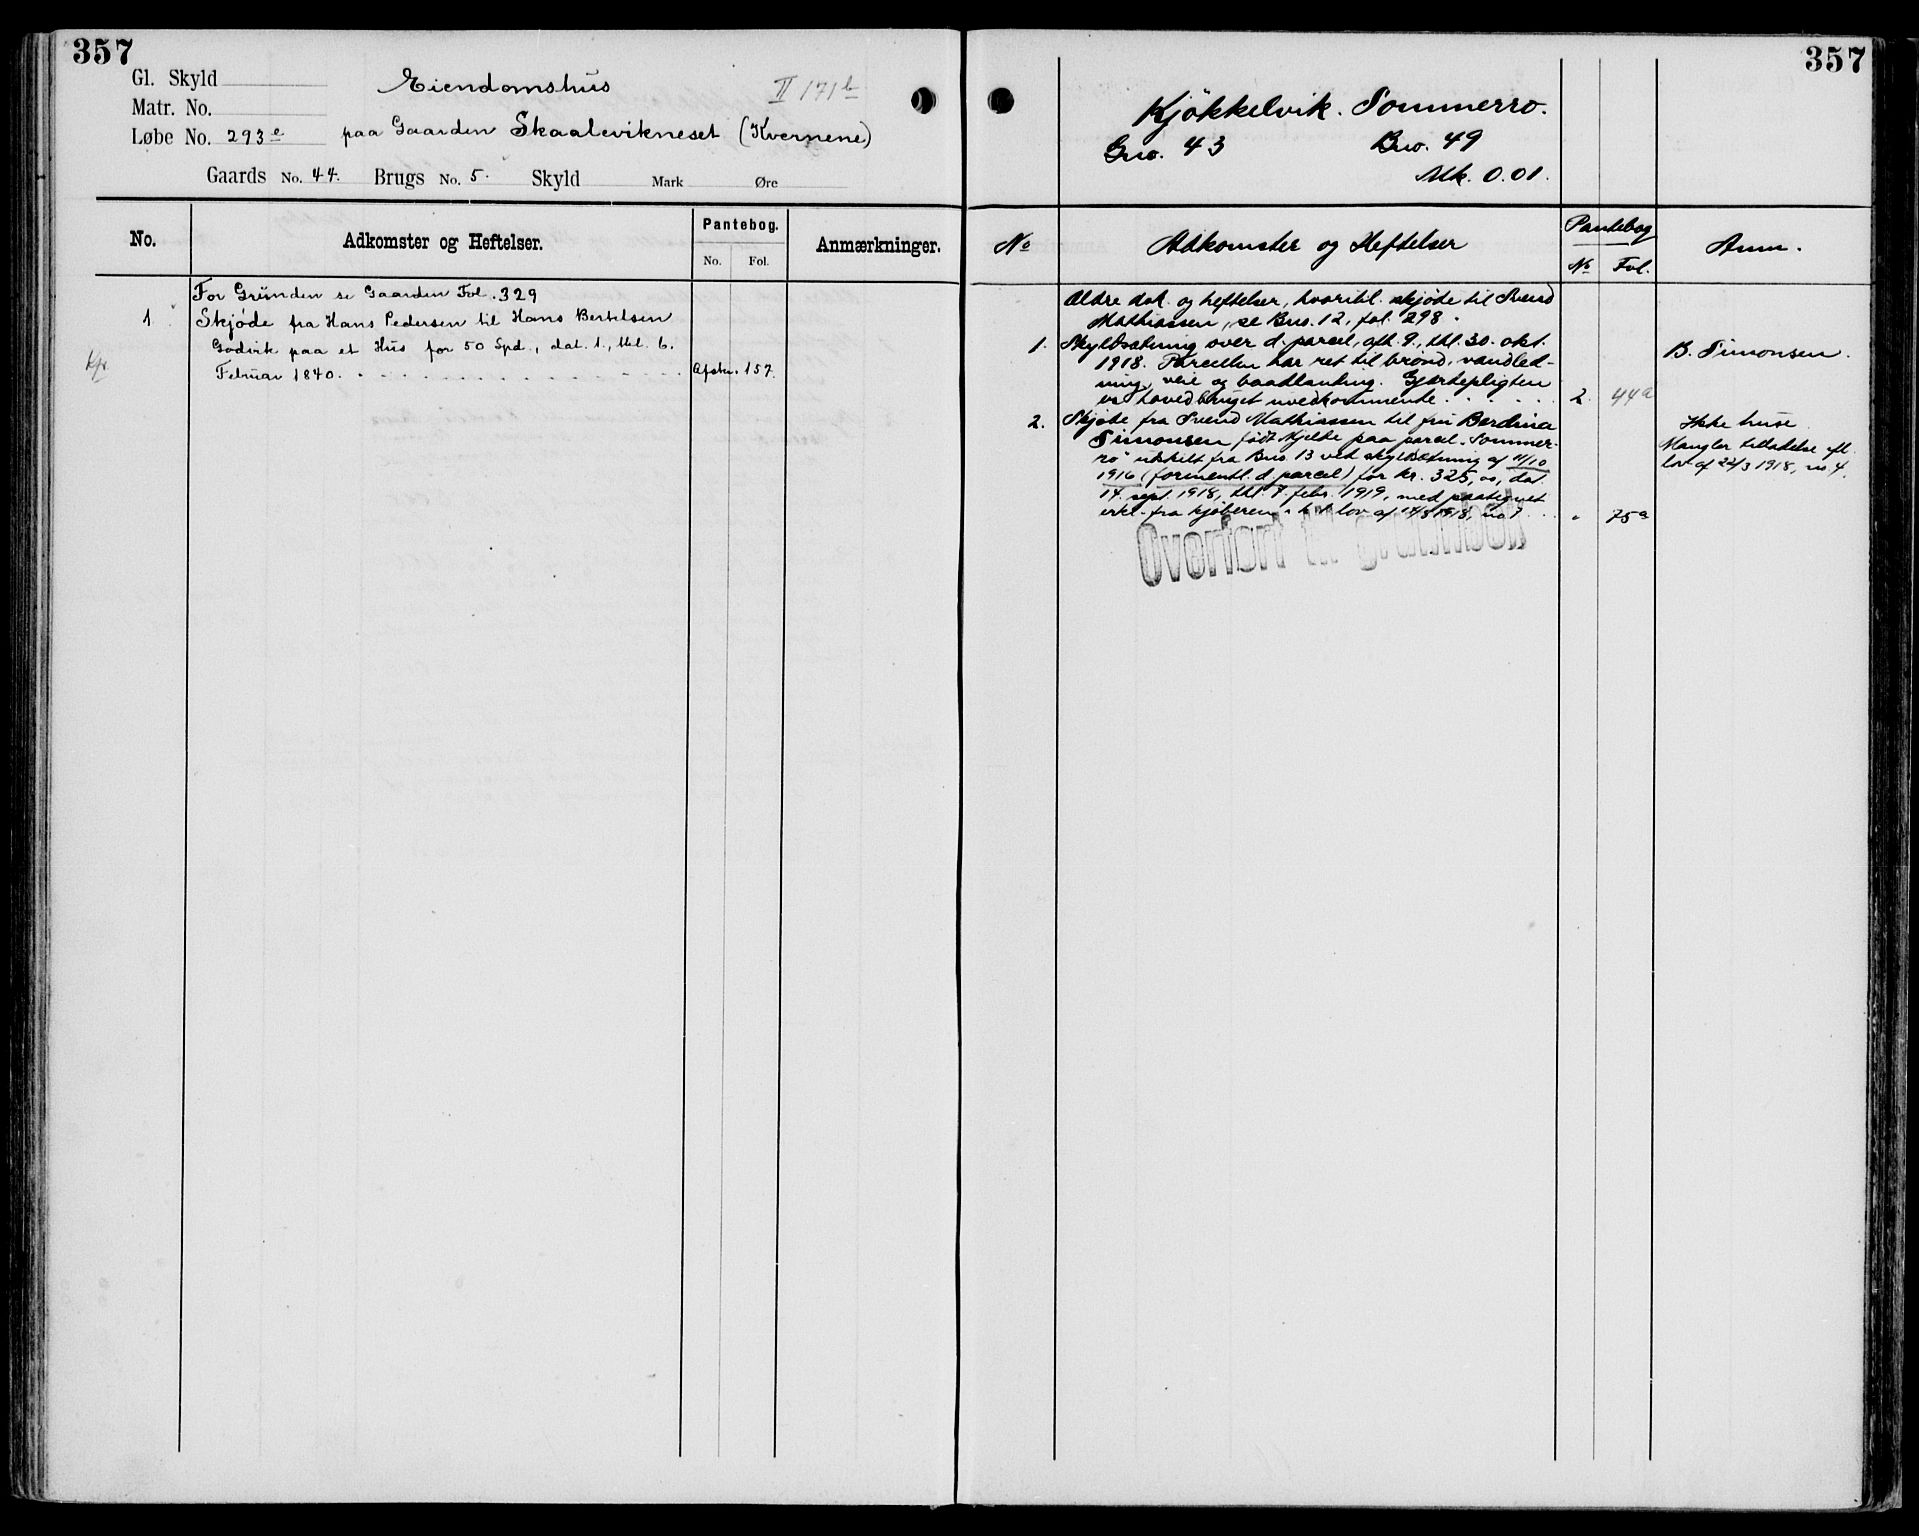 357
Gl. Skyld
Matr. No.
Løbe No. 293e
Eiendomshus
paa Gaarden Skaalevikneset (Kvernene)
II 171b
Gaards No. 44. Brugs No. 5. Skyld Mark Øre
No. Adkomster og Heftelser. Pantebog. Anmærkninger.
No. Fol.
For Grunden se Gaarden Fol. 329
1 Skjøde fra Hans Pedersen til Hans Bertelsen
Godvik paa et Hus for 50 Spd., dat. 1., thl. 6.
Februar 1840. Afskr. 157.
357
Kjøkkelvik. Sommerro.
Gno. 43 Bno. 49
Mk. 0.01.
No Adkomster og Heftelser Pantebog Anm.
No Fol.
Ældre dok. og heftelser, hvoribl. skjøte til Svend
Mathiassen, se Bno. 12, fol. 298.
1. Skyldsætning over d. parcel, afh. 9., thl. 30. okt.
1918. Parcellen har ret til brønd, vandled-
ning, veie og baadlanding. Gjærdepligten
er hovedbruget uvedkommende. 2. 44a
B. Simonsen.
2. Skjøte fra Svend Mathiassen til fru Berdina
Simonsen født Kjelbe paa parcel „Sommer-
ro" utskilt fra Bno 13 ved skyldsætning af 11/10
1916 (formentl. d. parcel) for kr. 325,00, dat.
14. sept. 1918, thl. 7. febr. 1919, med paategnet
erkl. fra kjøberen i h.t. lov af 1918, no 7 " 75a
Ikke huse.
Mangler tilladelse eft.
lov af 22/3 1918, no 4.
Overført til grunnbok